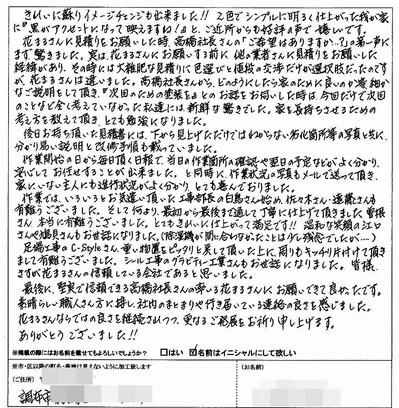 きれいに蘇りイメージチェンジも出来ました!! 2色でシンプルに明るく仕上がった我が家
に"黒がアクセントになって映えますね!"と、ご近所からも好評の声で嬉しいです。
花まるさんに見積りをお願いした時、高橋社長さんの「ご希望はありますか…?」の第一声に
まず驚きました。実は、花まるさんにお願いする前に他の業者さんに見積りをお願いした
経緯があり、その時には大雑把な見積りに色選びと値段の交渉だけが選択肢だったのです
が、花まるさんは違いました。高橋社長さんから、どのようにしたら家のために良いのか等 細か
なご説明をして頂き、"次回のための塗装を"とのお話をお伺いした時は、今回だけで次回
のことなど全く考えていなかった私達には新鮮な驚きでした。家を長持ちさせるための
考え方を教えて頂き とても勉強になりました。
後日お持ち頂いた見積書には、下から見上げただけではわからない劣化箇所等の写真と共に、
分かり易い説明と改修手順も載っていました。
作業開始の日から毎日頂く日報で、当日の作業箇所の確認や翌日の予定などがよく分かり、
安心してお任せすることが出来ました。と同時に、作業状況の写真もメールで送って頂き、
家にいない主人にも進行状況がよく分かり、とても喜んでおりました。
作業では、いろいろとお気遣い頂いた工事部長の白鳥さん始め、佐々木さん・遠藤さんも
有難うございました。そして何より、最初から最後まで通して丁寧に仕上げて頂きました皆様
さん 本当に有難うございました。とてもきれいに仕上がって満足です!! 温和な笑顔の江口
さんや
足場工事のC-Styleさん、重い物置をビックリと戻して頂いた上に、周りもスッキリ片付けて頂き
まして有難うございました。シール工事のグラビティー工業さんもお世話になりました。皆様、
さすが花まるさんの信頼している会社であると思いました。
最後に、堅実で信頼できる高橋社長さんの率いる花まるさんにお願いできて良かったです。
素晴らしい職人さん方に接し、社内のまとまりや行き届いている連絡の良さを感じました。
花まるさんならではの良さを維持されつつ、更なるご発展をお祈り申し上げます。
ありがとうございました!!
※掲載の際にはお名前を載せてもよろしいでしょうか? □はい ☑名前はイニシャルにして欲しい
※市・区以降の町名・番地は見えないように加工致します
(ご住所) (お名前)
調布市